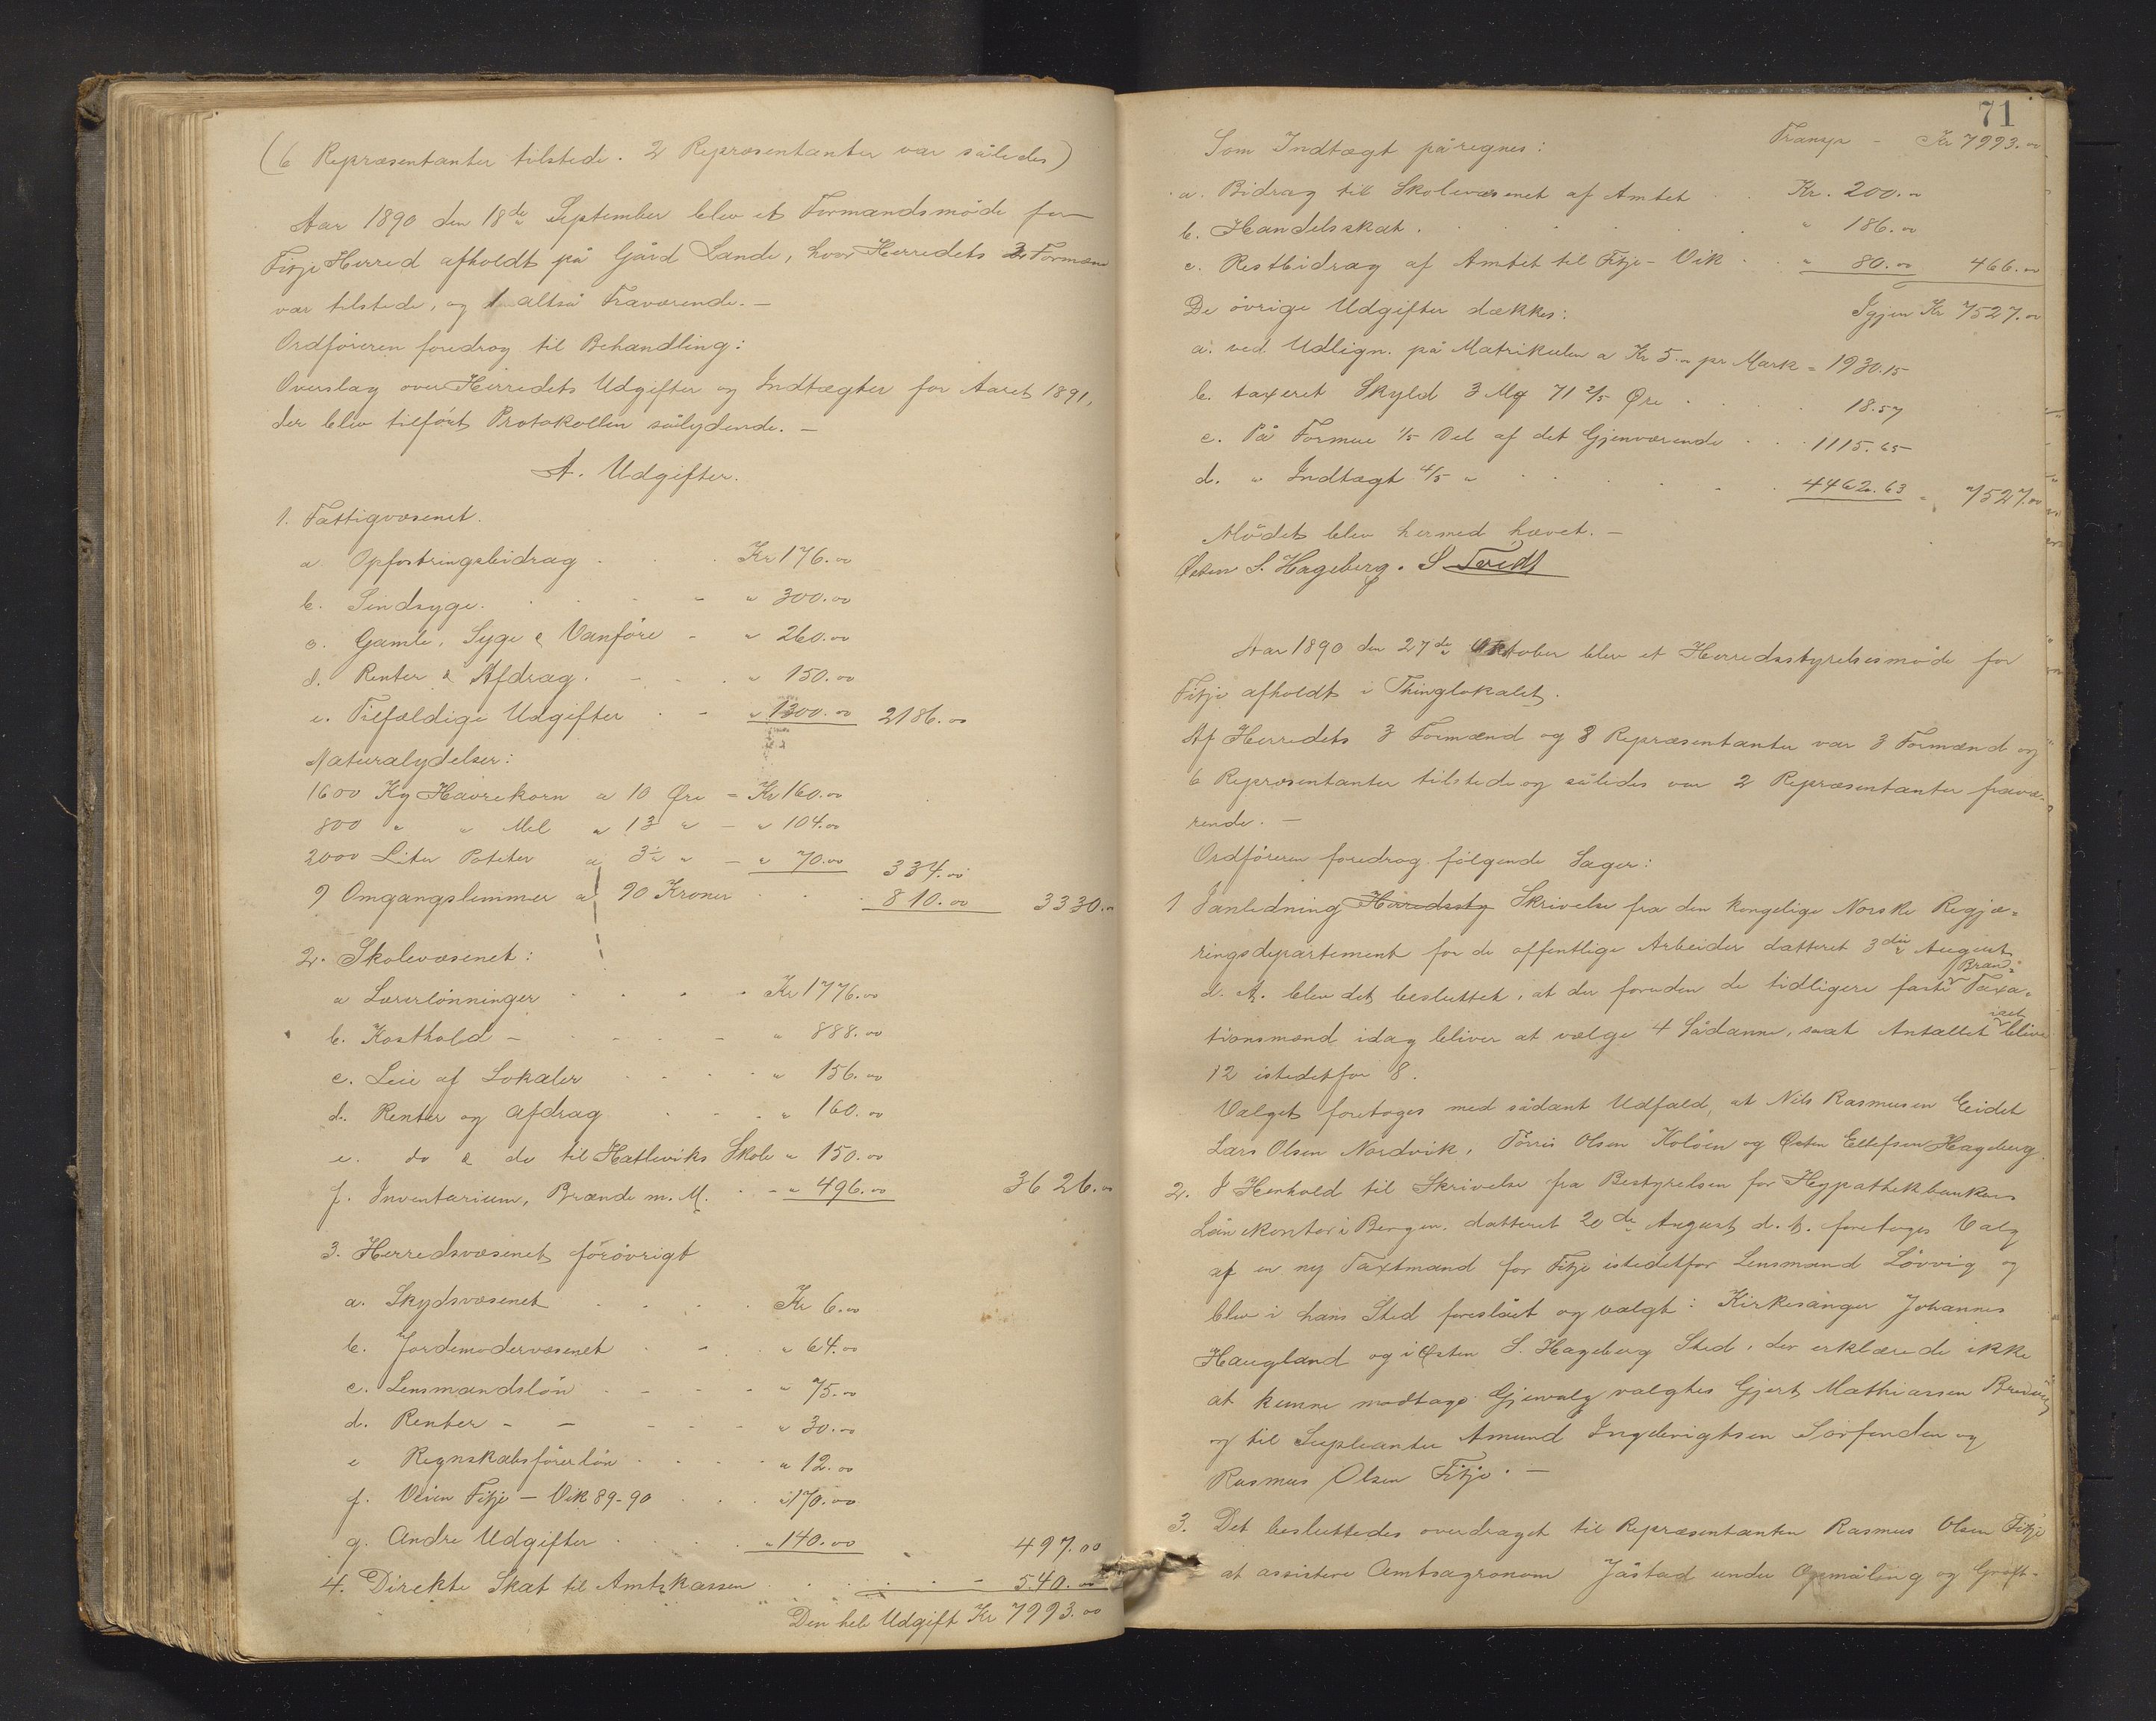 (6 Repræsentanter tilstede. 2 Repræsentanter var således)
Aar 1890 den 18de September blev et Formandsmøde for
Fitje Herred afholdt på Gård Lande, hvor Herredets 3 Formænd
var tilstede, og 1 altså Fraværende. —
Ordføreren foredrog til Behandling:
Overslag over Herredets Udgifter og Indtægter for Aaret 1891,
der blev tilført Protokollen sålydende. —
A. Udgifter.
1. Fattigvæsenet.
a Opfostringsbidrag . . Kr 176.00
b. Sindsyge. . . . - - " 300.00
c. Gamle, Syge & Vanføre - " 260.00
d. Renter & Afdrag. - - . " 150.00
e. Tilfældige Udgifter . - " 1300.00 2186.00
Naturalydelser:
1600 Kg Havrekorn a 10 Øre = Kr 160.00
800 " " Mel a 13 " - " 104.00
2000 Liter Poteter a 3½ " - " 70.00 334.00
9 Omgangslemmer a 90 Kroner . . . 810.00 3330.00
2. Skolevæsenet:
a Lærerlønninger . . . . Kr 1776.00
b. Kosthold - . . - - - " 888.00
c. Leie af Lokaler . . . . " 156.00
d. Renter og Afdrag . . . " 160.00
e. do & do til Hatleviks Skole " 150.00
f. Inventarium, Brænde m. M. . - " 496.00 3626.00
3. Herredsvæsenet forøvrigt
a. Skydsvæsenet . . . . Kr 6.00
b. Jordemodervæsenet . - . " 64.00
c. Lensmandsløn . - - . " 75.00
d. Renter - - - - - " 30.00
e Regnskabsførerløn . . . . " 12.00
f. Veien Fitje — Vik 89-90 . . . " 170.00
g. Andre Udgifter . . . . " 140.00 497.00
4. Direkte Skat til Amtskassen . . . . - 540.00
Den hele Udgift Kr 7993.00
71
Som Indtægt påregnes: Transp - Kr 7993.00
a. Bidrag til Skolevæsenet af Amtet . . Kr. 200.00
b. Handelsskat . . . . . . " 186.00
c. Restbidrag af Amtet til Fitje - Vik . . " 80.00 466.00
De øvrige Udgifter dækkes: Igjen Kr 7527.00
a. ved Udlign. på Matrikulen a Kr 5.00 pr Mark = 1930.15
b. taxeret Skyld 3 Mg 71 2/5 Øre . . . . 18.57
c. På Formue 1/5 Del af det Gjenværende . . . 1115.65
d. " Indtægt 4/5 " . . . . . 4462.63 = 7527.00
Mødet blev hermed hævet. —
Østen S. Hageberg. S Tvedt
Aar 1890 den 27de Oktober blev et Herredsstyrelsesmøde for
Fitje afholdt i Thinglokalet.
Af Herredets 3 Formænd og 8 Repræsentanter var 3 Formænd og
6 Repræsentanter tilstede og således var 2 Repræsentanter fravæ-
rende. —
Ordføreren foredrog følgende Sager:
1 Ianledning Herredssty Skrivelse fra den kongelige Norske Regjæ-
ringsdepartement for de offentlige Arbeider datteret 3die August
d. A. blev det besluttet, at der foruden de tidligere faste Bran- Taxa-
tionsmænd idag bliver at vælge 4 Sådanne, saat Antallet ialt blive
12 istedetfor 8.
Valget foretoges med sådant Udfald, at Nils Rasmusen Eidet
Lars Olsen Nordvik, Tørris Olsen Koløen og Østen Ellefsen Hageberg.
2. I Henhold til Skrivelse fra Bestyrelsen for Hypothekbankens
Lånekontor i Bergen, datteret 20de August d. A. foretoges Valg
af en ny Taxtmand for Fitje istedetfor Lensmand Løvvig og
blev i hans Sted foreslået og valgt: Kirkesanger Johannes
Haugland og i Østen S. Hageberg Sted, der erklærede ikke
at kunne modtage Gjenvalg valgtes Gjert Mathiassen
og til Supleanter Amund Ingebrigtsen Sørfonden og
Rasmus Olsen Fitje. —
3. Det besluttedes overdraget til Repræsentanten Rasmus Olsen Fitje
at assistere Amtsagronom Jåstad under Opmåling og Grøft-